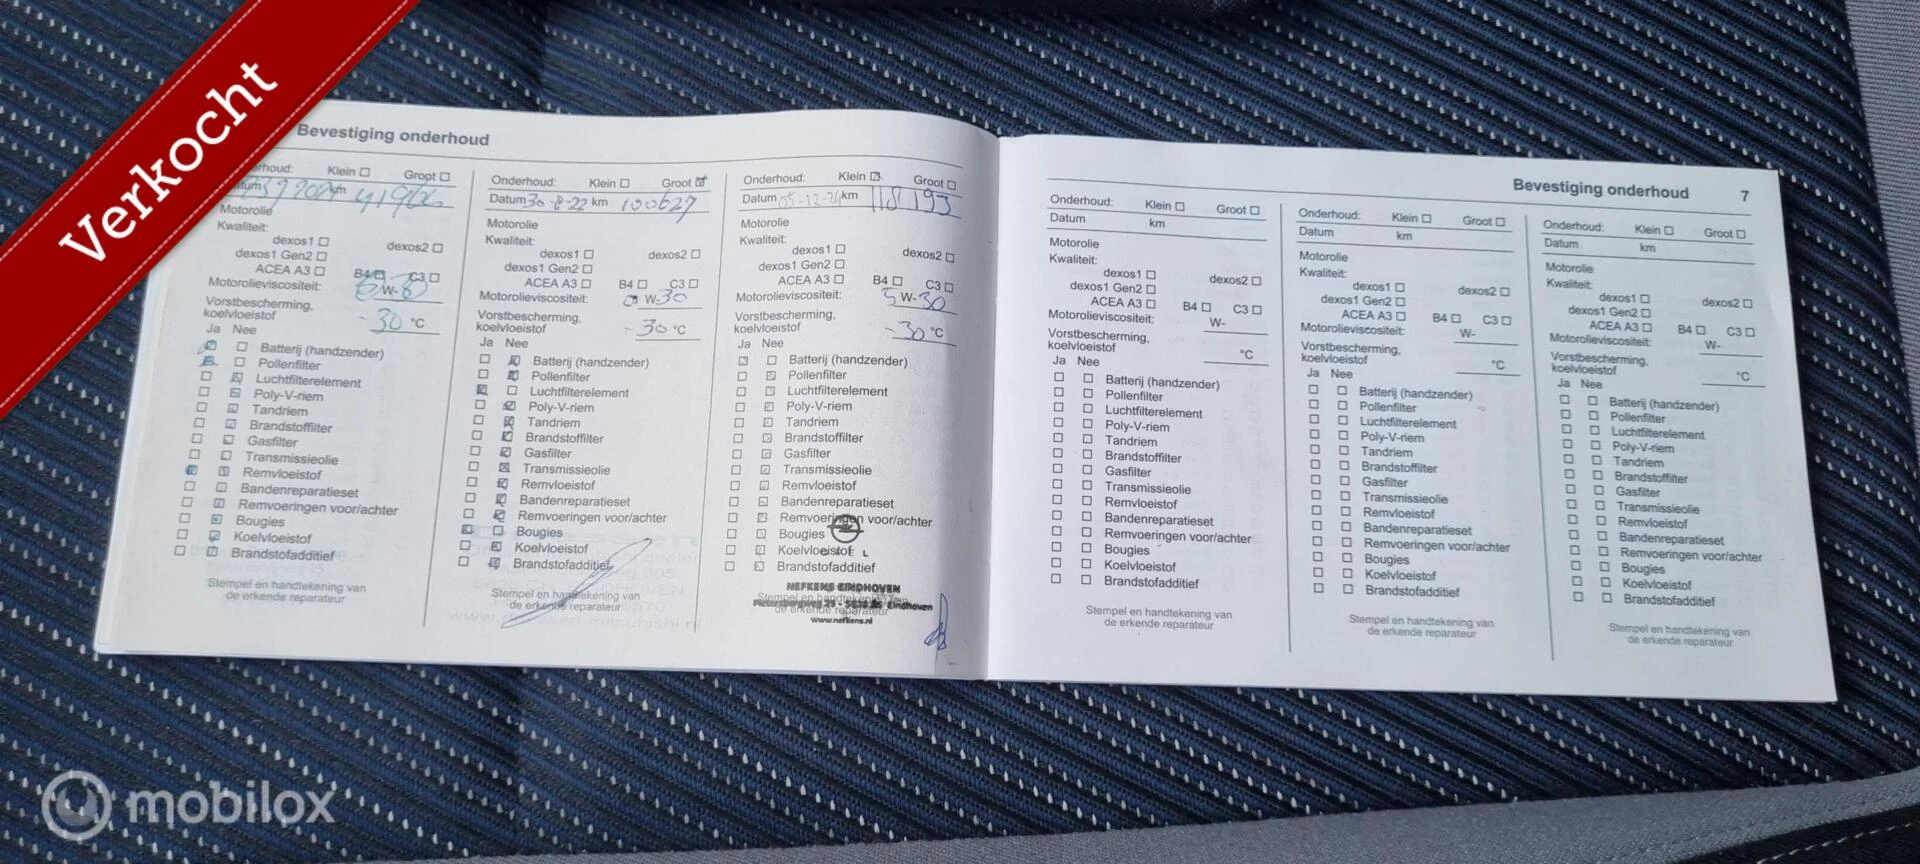 Verkocht
Bevestiging onderhoud
Klein Groot
km
Motorolie
Kwaliteit:
dexos1 dexos2
dexos1 Gen2
ACEA A3 B4 C3
Motorolieviscositeit: W-
Vorstbescherming,
koelvloeistof -30 °C
Ja Nee
Batterij (handzender)
Pollenfilter
Luchtfilterelement
Poly-V-riem
Tandriem
Brandstoffilter
Gasfilter
Transmissieolie
Remvloeistof
Bandenreparatieset
Remvoeringen voor/achter
Bougies
Koelvloeistof
Brandstofadditief
Stempel en handtekening van
de erkende reparateur
Onderhoud: Klein Groot
Datum 30-8-22 km 100627
Motorolie
Kwaliteit:
dexos1 dexos2
dexos1 Gen2
ACEA A3 B4 C3
Motorolieviscositeit: W-30
Vorstbescherming,
koelvloeistof -30 °C
Ja Nee
Batterij (handzender)
Pollenfilter
Luchtfilterelement
Poly-V-riem
Tandriem
Brandstoffilter
Gasfilter
Transmissieolie
Remvloeistof
Bandenreparatieset
Remvoeringen voor/achter
Bougies
Koelvloeistof
Brandstofadditief
Stempel en handtekening van
de erkende reparateur
Onderhoud: Klein Groot
Datum 05-12-24 km 118193
Motorolie
Kwaliteit:
dexos1 dexos2
dexos1 Gen2
ACEA A3 B4 C3
Motorolieviscositeit: 5W-30
Vorstbescherming,
koelvloeistof -30 °C
Ja Nee
Batterij (handzender)
Pollenfilter
Luchtfilterelement
Poly-V-riem
Tandriem
Brandstoffilter
Gasfilter
Transmissieolie
Remvloeistof
Bandenreparatieset
Remvoeringen voor/achter
Bougies
Koelvloeistof
Brandstofadditief
NEFKENS EINDHOVEN
Stempel en handtekening van
Eindhoven
de erkende reparateur
www.nefkens.nl
Bevestiging onderhoud 7
Onderhoud: Klein Groot
Datum km
Motorolie
Kwaliteit:
dexos1 dexos2
dexos1 Gen2
ACEA A3 B4 C3
Motorolieviscositeit: W-
Vorstbescherming,
koelvloeistof °C
Ja Nee
Batterij (handzender)
Pollenfilter
Luchtfilterelement
Poly-V-riem
Tandriem
Brandstoffilter
Gasfilter
Transmissieolie
Remvloeistof
Bandenreparatieset
Remvoeringen voor/achter
Bougies
Koelvloeistof
Brandstofadditief
Stempel en handtekening van
de erkende reparateur
Onderhoud: Klein Groot
Datum km
Motorolie
Kwaliteit:
dexos1 dexos2
dexos1 Gen2
ACEA A3 B4 C3
Motorolieviscositeit: W-
Vorstbescherming,
koelvloeistof °C
Ja Nee
Batterij (handzender)
Pollenfilter
Luchtfilterelement
Poly-V-riem
Tandriem
Brandstoffilter
Gasfilter
Transmissieolie
Remvloeistof
Bandenreparatieset
Remvoeringen voor/achter
Bougies
Koelvloeistof
Brandstofadditief
Stempel en handtekening van
de erkende reparateur
Onderhoud: Klein Groot
Datum km
Motorolie
Kwaliteit:
dexos1 dexos2
dexos1 Gen2
ACEA A3 B4 C3
Motorolieviscositeit: W-
Vorstbescherming,
koelvloeistof °C
Ja Nee
Batterij (handzender)
Pollenfilter
Luchtfilterelement
Poly-V-riem
Tandriem
Brandstoffilter
Gasfilter
Transmissieolie
Remvloeistof
Bandenreparatieset
Remvoeringen voor/achter
Bougies
Koelvloeistof
Brandstofadditief
Stempel en handtekening van
de erkende reparateur
mobilox